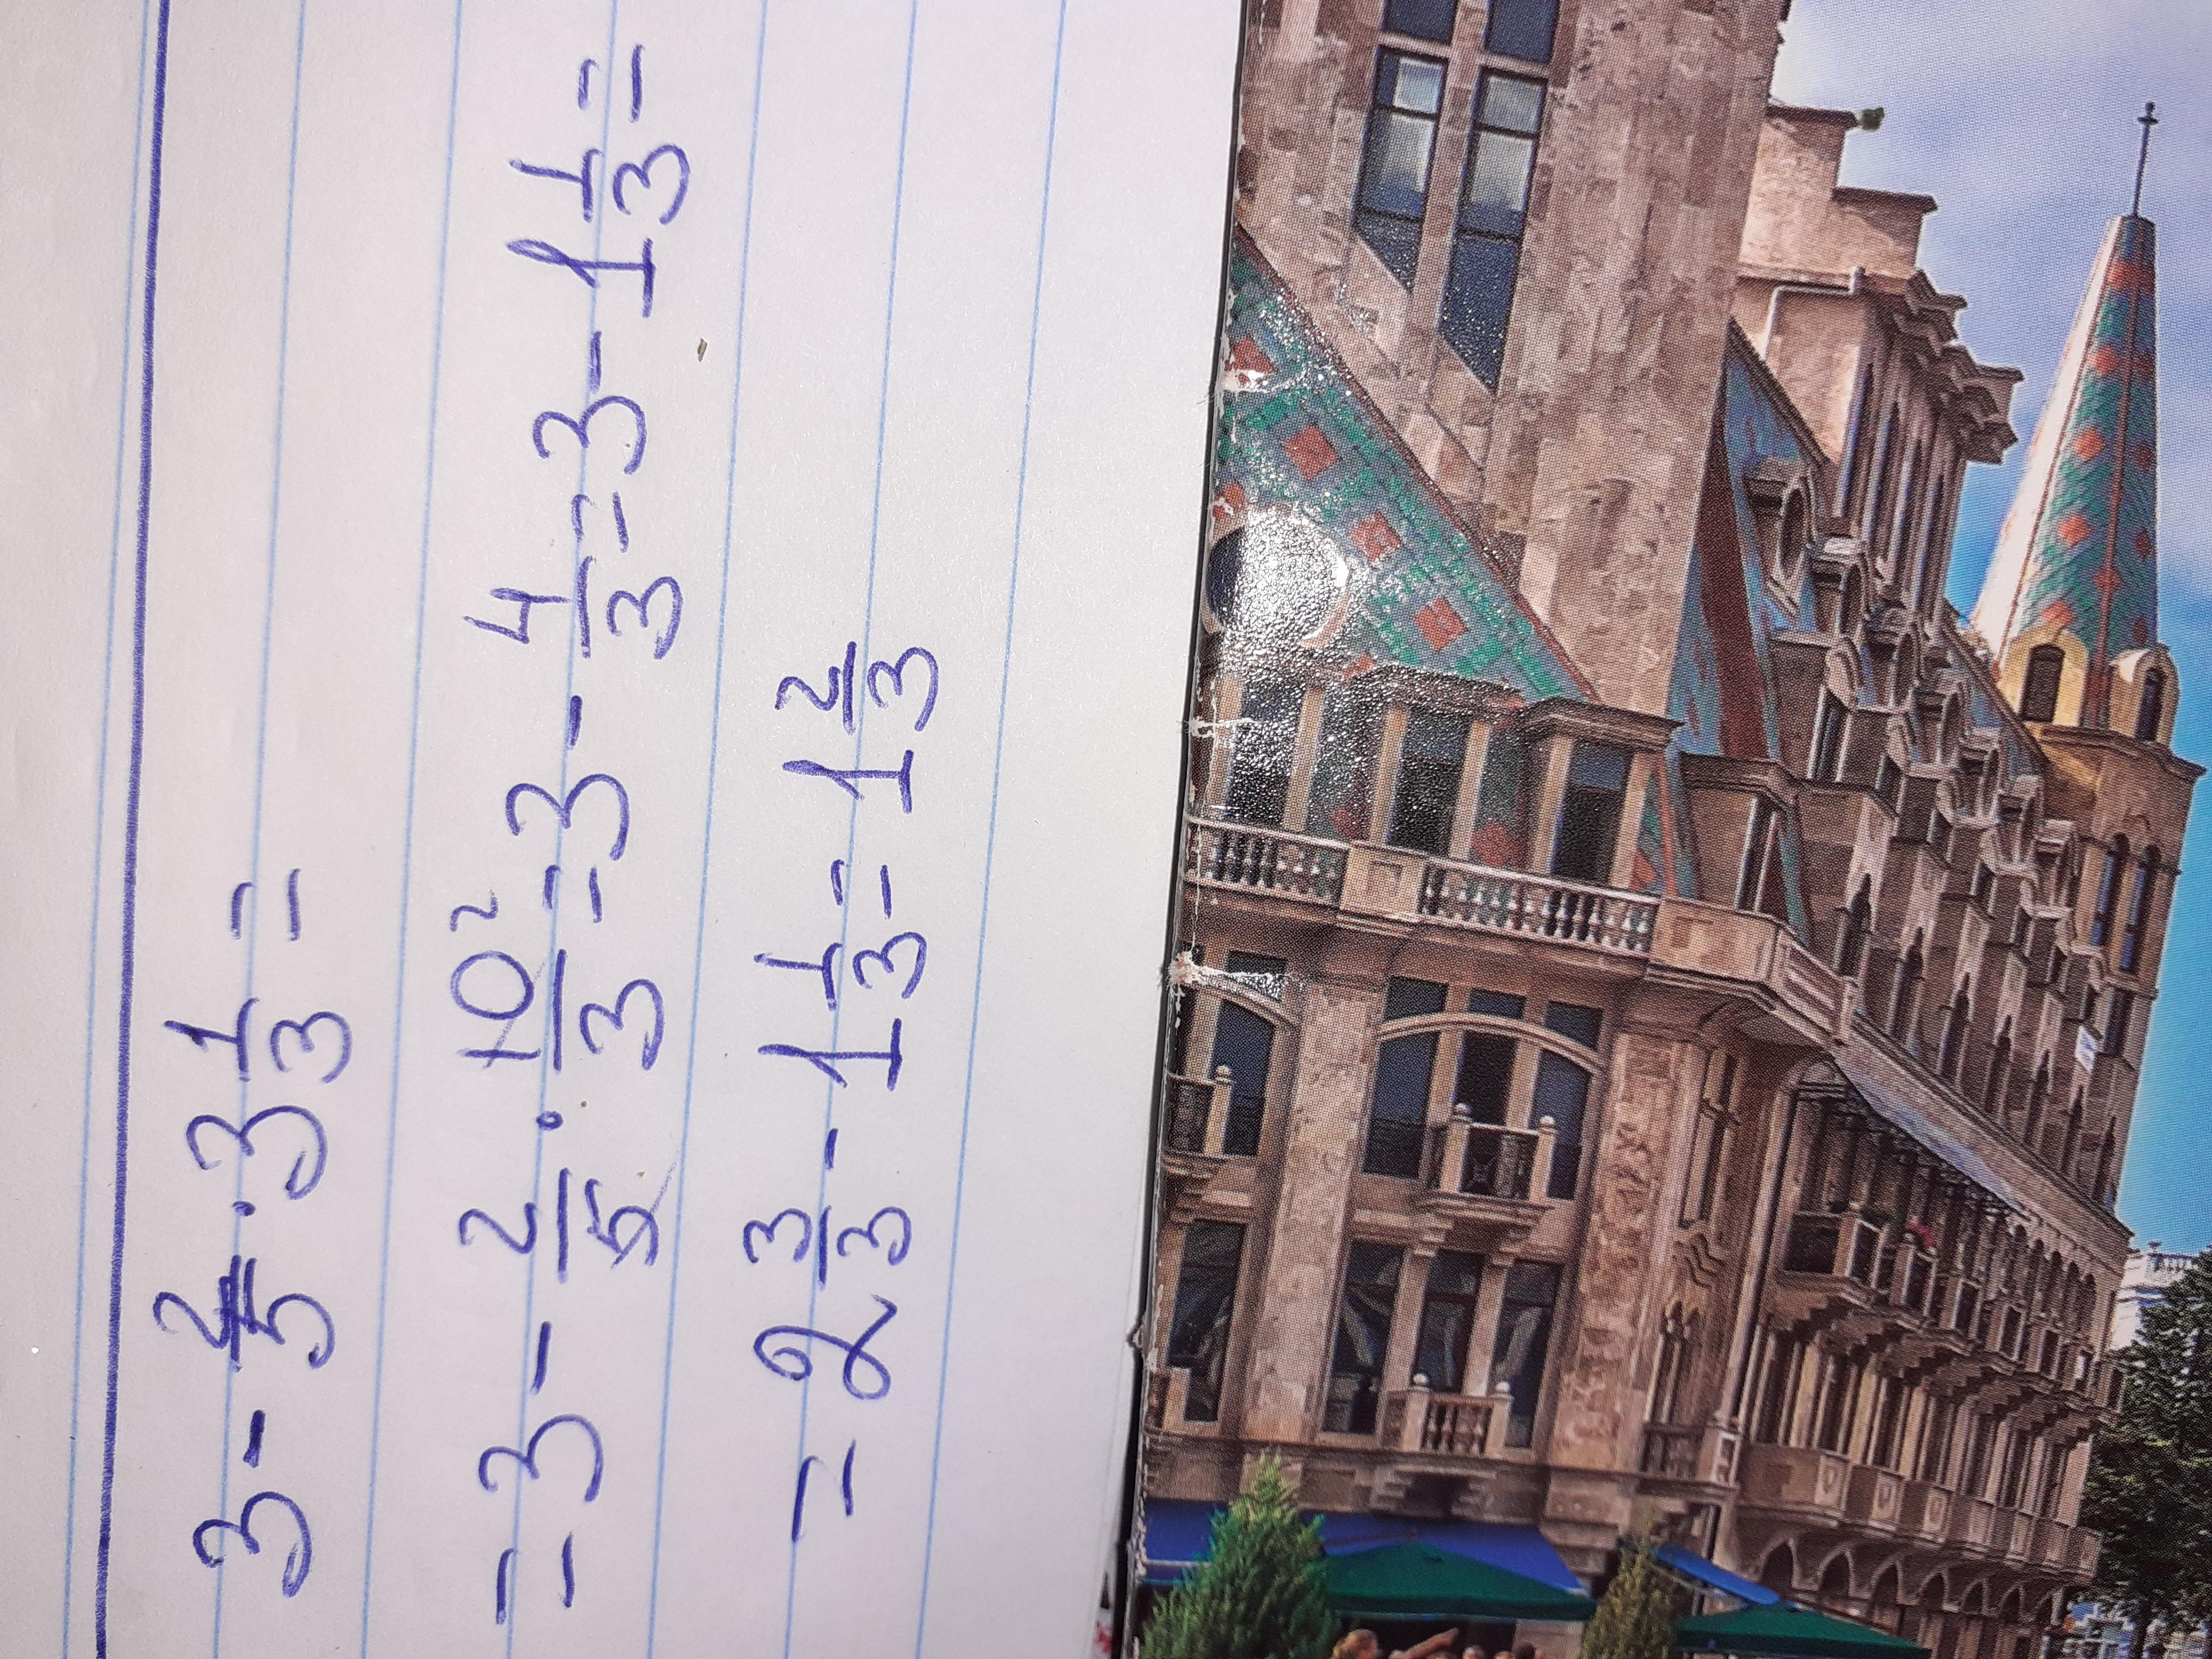 3 - 2/5 · 3 1/3 =
= 3 - 2/5 · 10²/3 = 3 - 4/3 = 3 - 1 1/3 =
= 2 3/3 - 1 1/3 = 1 2/3